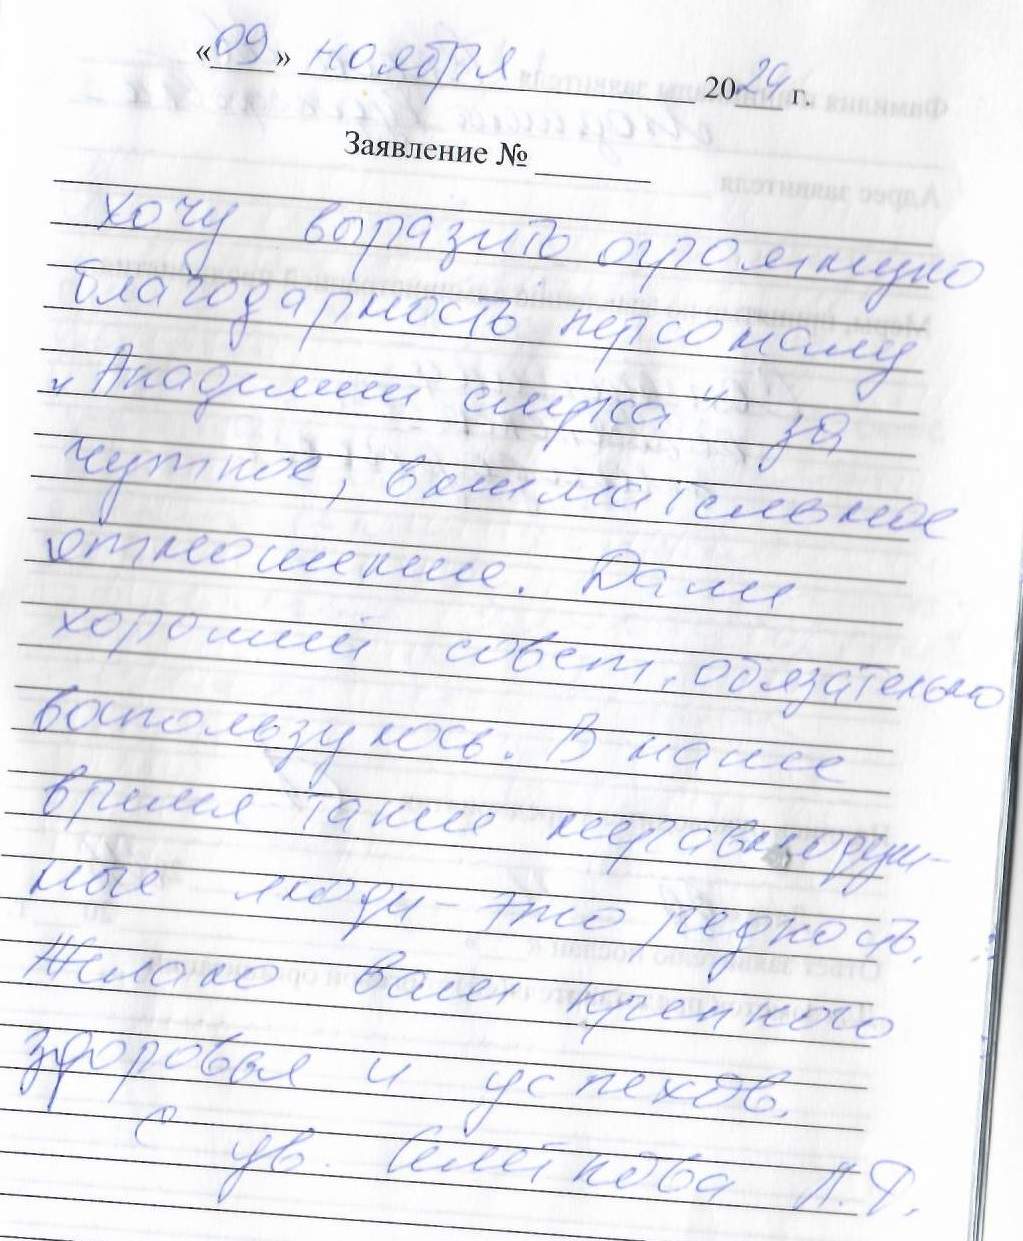 «09» ноября 2024 г.
Заявление №
Хочу выразить огромную
благодарность персоналу
"Академии слуха" за
чуткое, внимательное
отношение. Дали
хороший совет, обязательно
воспользуюсь. В наше
время такие неравнодуш-
ные люди - это редкость.
Желаю вам крепкого
здоровья и успехов.
С ув.